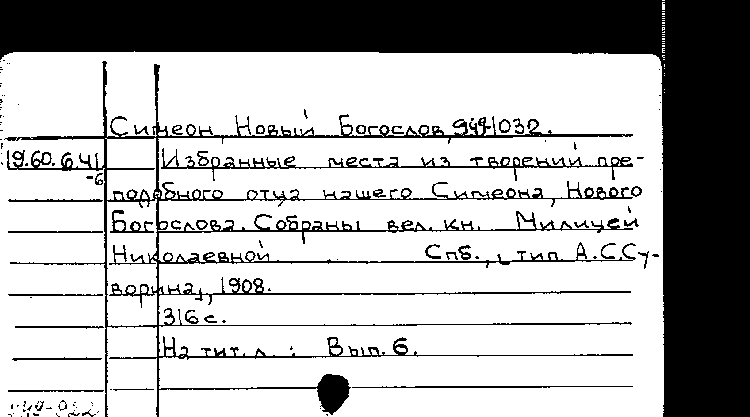 Симеон Новый Богослов, 949-1032.
19.60.6.41 Избранные места из творений пре-
-6
подобного отца нашего Симеона, Нового
Богослова. Собраны вел. кн. Милицей
Николаевной. Спб., тип. А.С.Су-
ворина, 1908.
316 с.
На тит. л. : Вып. 6.